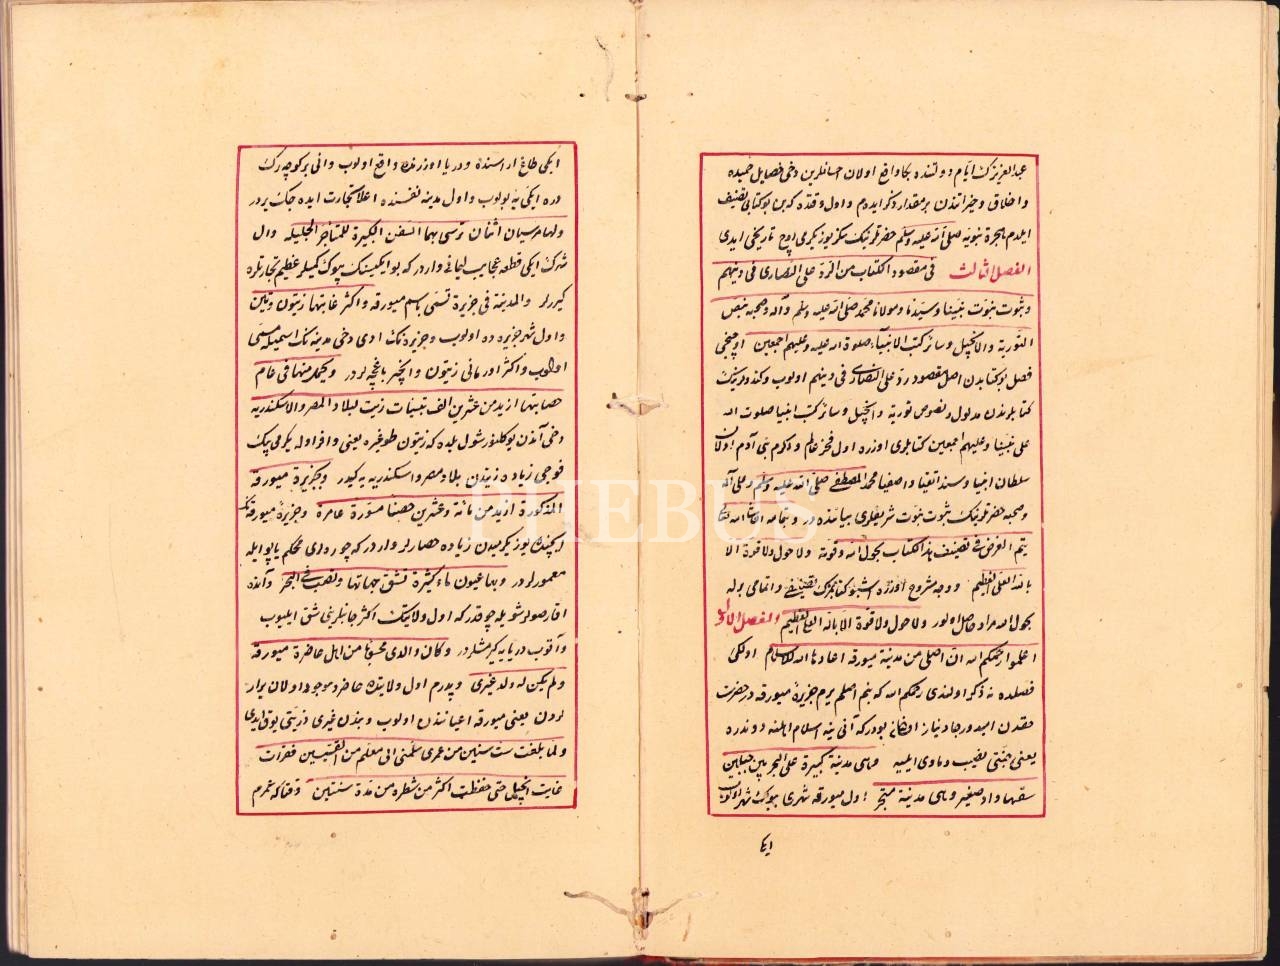 عبد العزيزك ايام دولتنده بكا واقع اولان احسانلرين دخى فضايل حميده
واخلاق وخيراتندن بر مقدار ذكر ايدهم واول وقتده كه بن بو كتابى تصنيف
ايلدم هجرة نبويه صلى الله عليه وسلم حضرتلرينك سكز يوز يكرمى اوچ تاريخى ايدى
الفصل الثالث فى مقصود الكتاب من الرد على النصارى فى دينهم
وثبوت نبوت نبينا وسيدنا ومولانا محمد صلى الله عليه وسلم وآله وصحبه بنص
التورية والانجيل وسائر كتب الانبيآء صلوة الله عليه وعليهم اجمعين اوچنجى
فصل بو كتابدن اصل مقصود رد على النصارى فى دينهم اولوب وكندولرينك
كتابلرندن مدلول ونصوص تورية وانجيل وسائر كتب انبيا صلوت الله
على نبينا وعليهم اجمعين كتابلرى اوزره اول فخر عالم واكرم بنى آدم اولان
سلطان انبيا وسند اتقيا واصفيا محمد المصطفى صلى الله عليه وسلم وعلى آله
وصحبه حضرتلرينك ثبوت نبوت شريفلرى بياننده در وبتمامه انشاالله تعالى
يتم الغرض فى تصنيف هذا الكتاب بحول الله وقوته ولا حول ولا قوة الا
بالله العلى العظيم ووجه مشروح اوزره اشبو كتابمزك تصنيفى واتمامى بوله
بحول الله مراد حاصل اولور ولا حول ولا قوة الا بالله العلى العظيم والفصل الاول
اعلموا رحمكم الله ان اصلى من مدينة ميورقه اعادها الله للاسلام اولكى
فصلده نه ذكر اولندى رحمكم الله كه بنم اصلم يرم جزيرۀ ميورقه در حضرت
حقدن اميد ورجا ونياز بودر كه آنى ينه اسلام اهلنه دوندره
يعنى نصيب وماوى ايليه وهى مدينة كبيرة على البحر بين جبلين
يشقها واد صغير وهى مدينة متجر اول ميورقه شهرى بيوك شهر اولوب
ايكى
ايكى طاغ اراسنده ودريا اوزرنده واقع اولوب وانى بر كوچرك
دره ايكى يه بولوب واول مدينه نفسنده اعلا تجارت ايده جك يردر
ولها مرسيان اثنان ترسى بهما السفن الكبيرة للمتاجر الجليلة واول
شهرك ايكى قطعه عجايب ليمانى واردر كه بو ايكيسنك بيوك كميلر عظيم تجارتلره
كيررلر والمدينة فى جزيرة تسمى باسم ميورقه واكثر غابتها زيتون وتين
واول شهر جزيره ده اولوب وجزيرۀ نك ادى دخى مدينه نك اسميله مسمى
اولوب واكثر اورمانى زيتون وانجير باغچه لردر ويحمل منها فى عام
خصابتها ازيد من عشرين الف تبنيات زيت لبلاد المصر والاسكندريه
دخى آندن يوكلنور شول يلده كه زيتون طوغيره يعنى وافر اوله يكرمى بيك
فوچى زياده زيتدن بلاد مصر واسكندريه يه كيدر وبجزيرة ميورقة
المذكورة ازيد من مائة وعشرين حصنا مسورة عامرة وجزيرۀ ميورقه نك
ايچنده يوز يكرميدن زياده حصارلر واردر كه چوره دى محكم ياپو ايله
معمورلردر وبها عيون ماء كثيرة تشق جهاتها وتصب فى البحر وآنده
اقار صولر شويله چوقدر كه اول ولايتك اكثر جانبلرينى شق ايليوب
وآقوب دريايه كيرمشلردر وكان والدى محسوبا من اهل حاضرة ميورقه
ولم يكن له ولد غيرى وپدرم اول ولايتده حاضر وموجود اولان برار
لردن يعنى ميورقه اعيانندن اولوب وبندن غيرى ذريتى يوق ايدى
ولما بلغت ست سنين من عمرى سلمنى الى معلم من القسيسين فقرأت
عليه انجيل حتى حفظت اكثر من شطره من مدة سنتين وقتاكه عمرم
PHEBUS